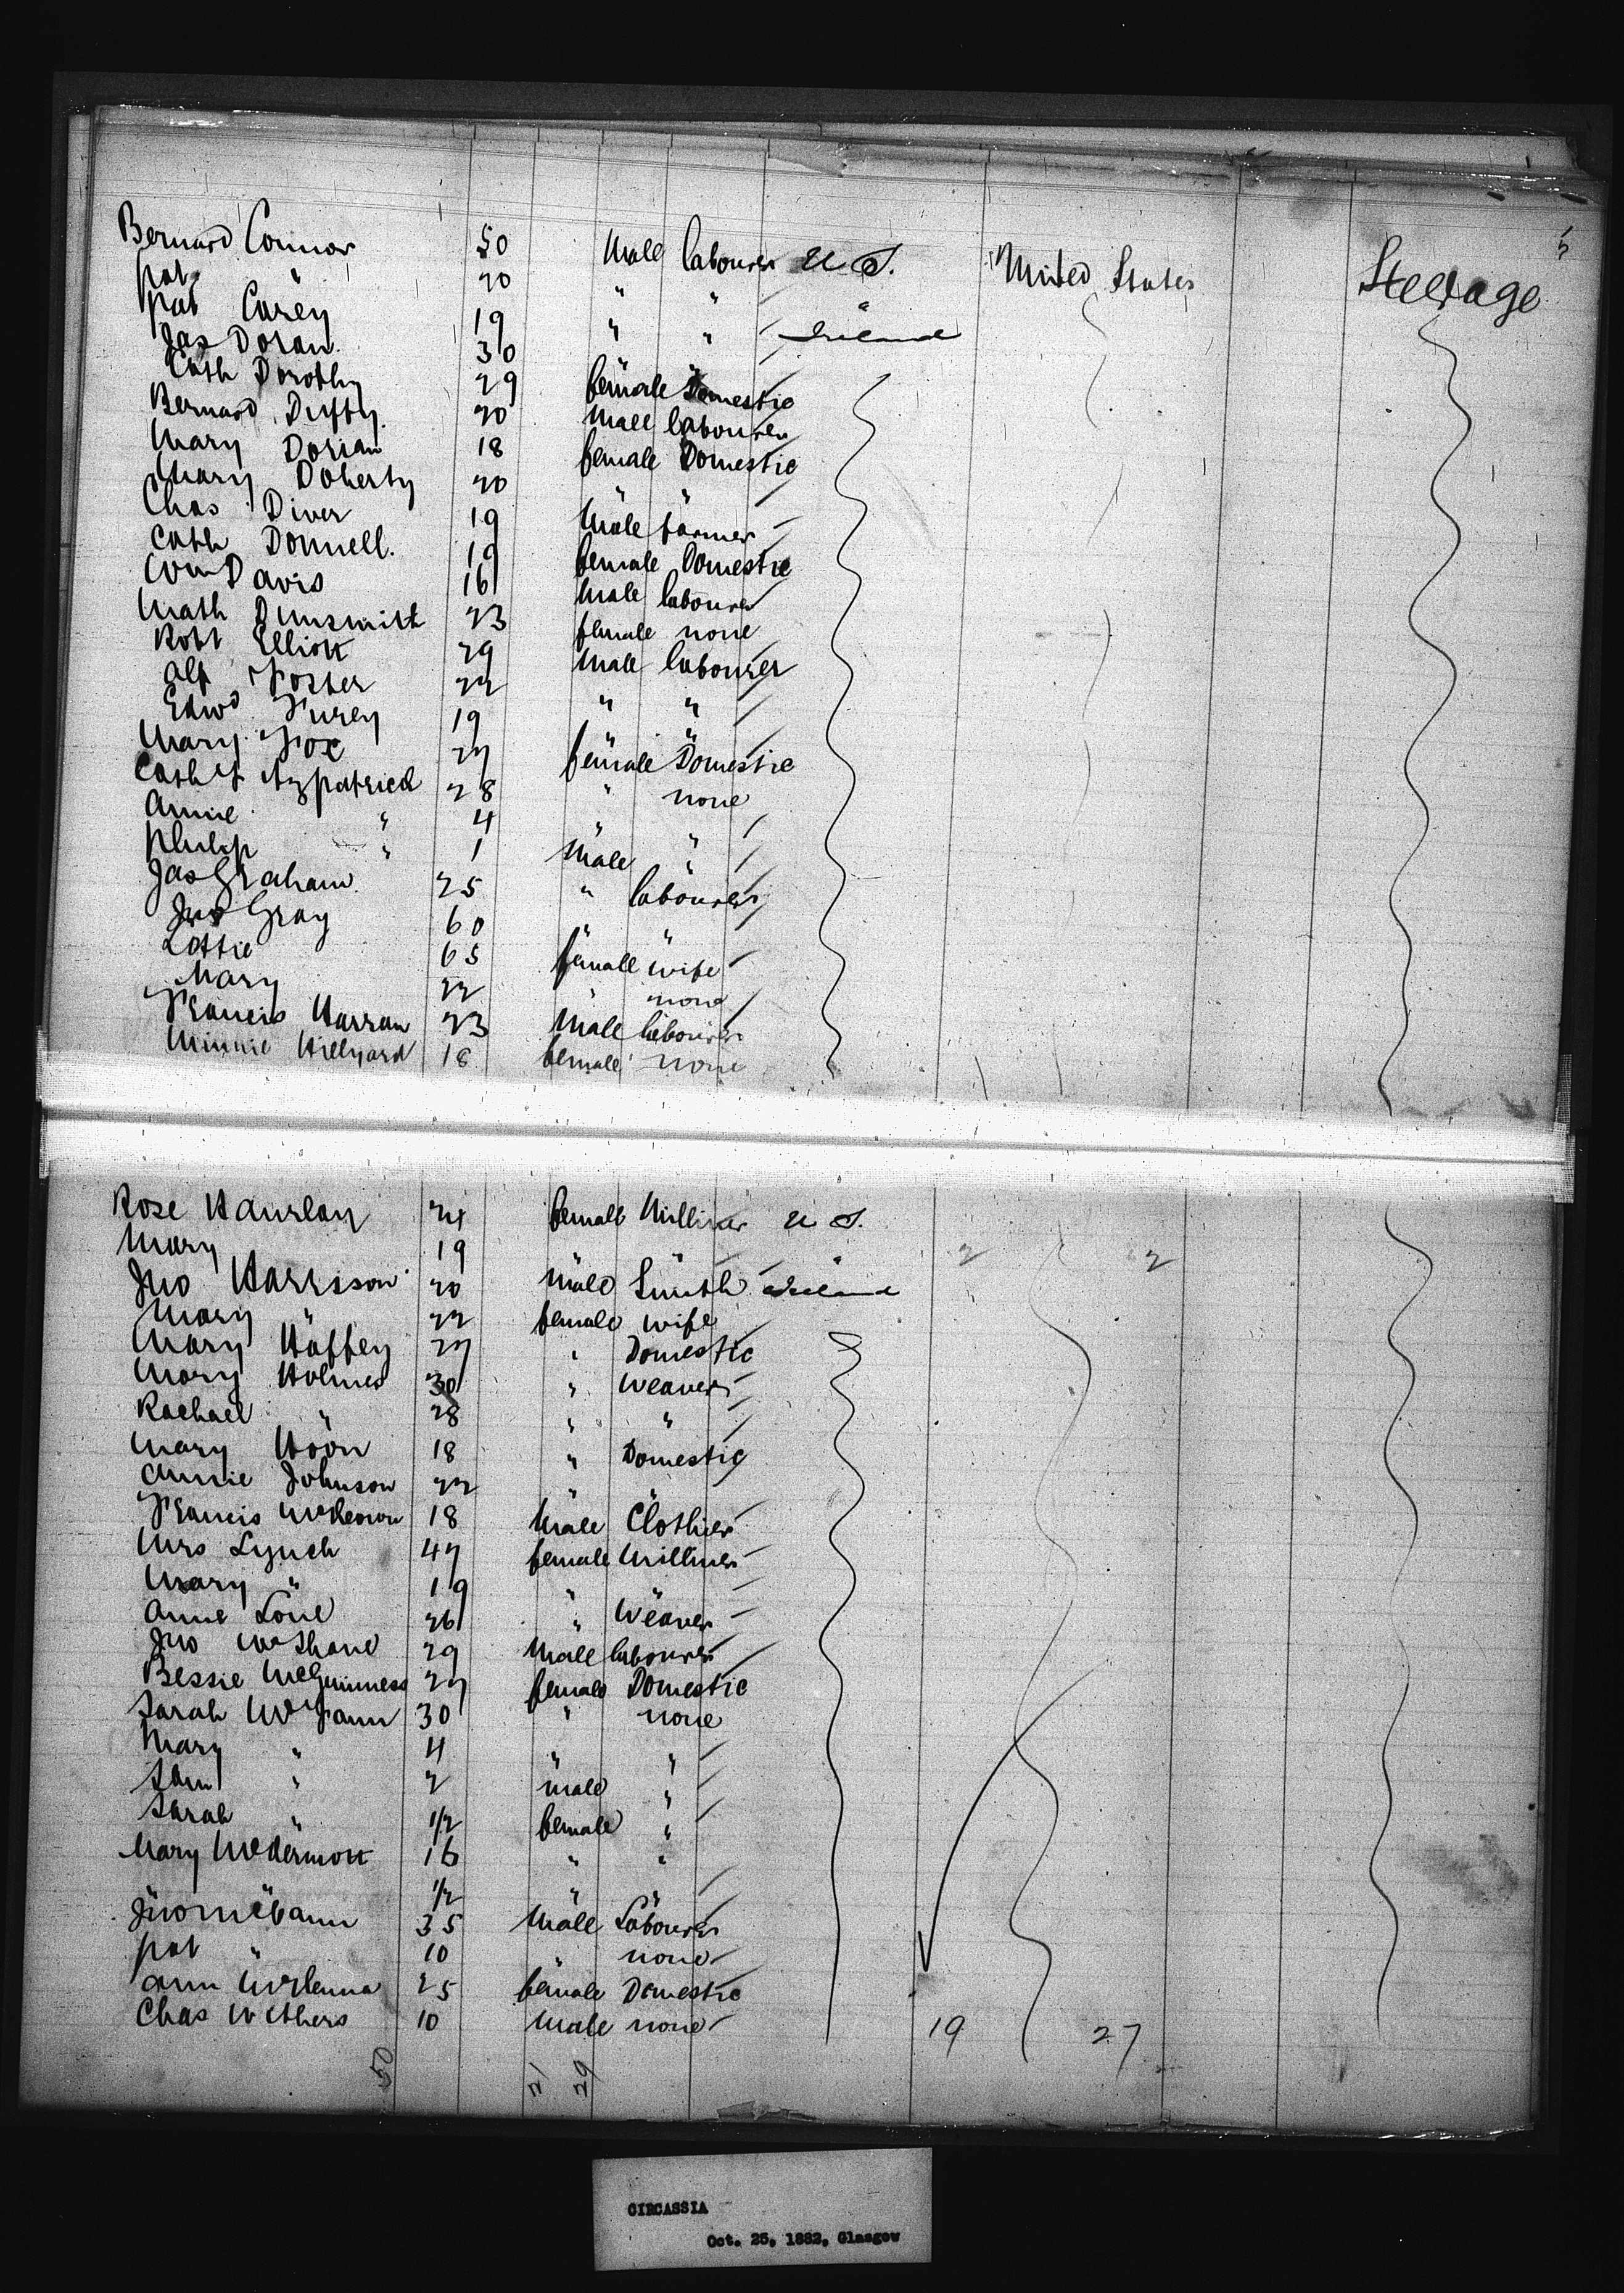 5
Bernard Connor 50 Male labourer U S. United States Steerage
Pat " 20 " "
Pat Carey 19 " " Ireland
Jas Doran 30 " "
Cath Dorothy 29 female Domestic
Bernard Duffy 20 Male labourer
Mary Dorian 18 female Domestic
Mary Doherty 20 " "
Chas Diver 19 Male farmer
Cath Donnell. 19 female Domestic
Wm Davis 16 Male labourer
Math Dunsmith 23 female none
Robt Elliott 29 Male labourer
Alf Foster 22 " "
Edwd Furey 19 " "
Mary Fox 27 female Domestic
Cath Fitzpatrick 28 " none
Annie " 4 " "
Philip " 1 Male "
Jas Graham 25 " labourer
Jno Gray 60 " "
Lottie 65 female wife
Mary 22 " none
Francis Harran 23 Male labourer
Minnie Hillyard 18 female none
Rose Hanrlan 24 female Milliner U S.
Mary 19 " " 2 2
Jno Harrison 20 Male Smith Ireland
Mary " 22 female wife
Mary Haffey 27 " Domestic
Mary Holmes 30 " Weaver
Rachael " 28 " "
Mary Hoon 18 " Domestic
Annie Johnson 22 " "
Francis McKeown 18 Male Clothier
Mrs Lynch 47 female Milliner
Mary " 19 " "
Anne Love 26 " Weaver
Jno McShane 29 Male labourer
Bessie McGuinness 27 female Domestic
Sarah 30 " none
Mary " 4 " "
Saml " 2 male "
Sarah " 1/2 female "
Mary McDermott 16 " "
" " 1/2 " "
Jno McCann 35 Male Labourer
Pat " 10 " none
Ann 25 female Domestic
Chas Withers 10 Male none 19 27
50 21 29
CIRCASSIA
Oct. 25, 1882, Glasgow